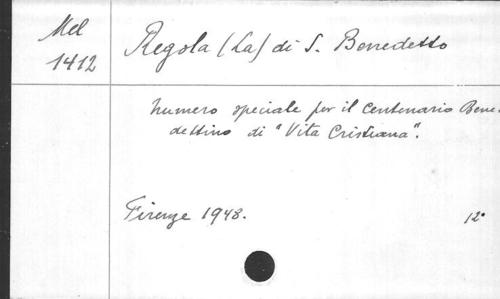 Mel
1412
Regola (La) di S. Benedetto
numero speciale per il Centenario Bene-
dettino di "Vita Cristiana".
Firenze 1948.
12°